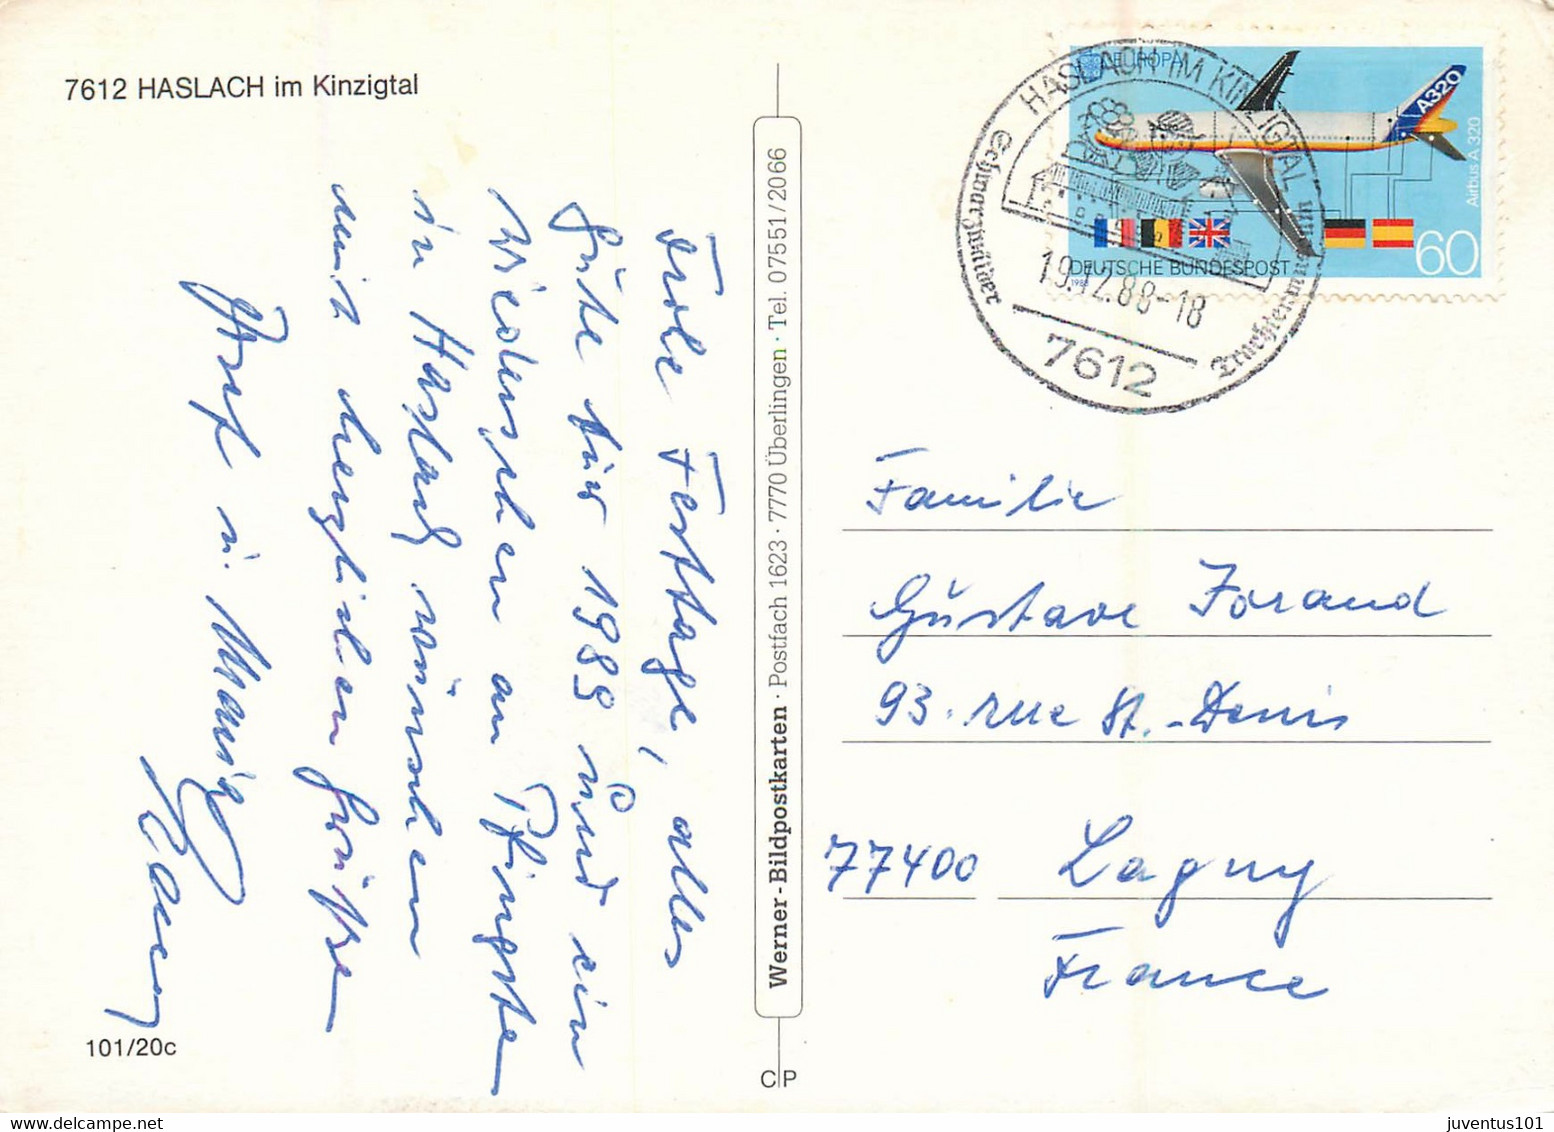 7612 HASLACH im Kinzigtal
Frohe Festtage, alles
Gute für 1989 und ein
Wiedersehen an Pfingsten
in Haslach wünschen
mit herzlichen Grüßen
Josef u.
101/20c
Werner-Bildpostkarten · Postfach 1623 · 7770 Überlingen · Tel. 07551/2066
C P
EUROPA
A320
Airbus A 320
DEUTSCHE BUNDESPOST
60
1988
HASLACH IM KINZIGTAL
Schwarzwälder
19.12.88-18
7612
Familie
Gustave Forand
93. rue St.-Denis
77400 Lagny
France
juventus101